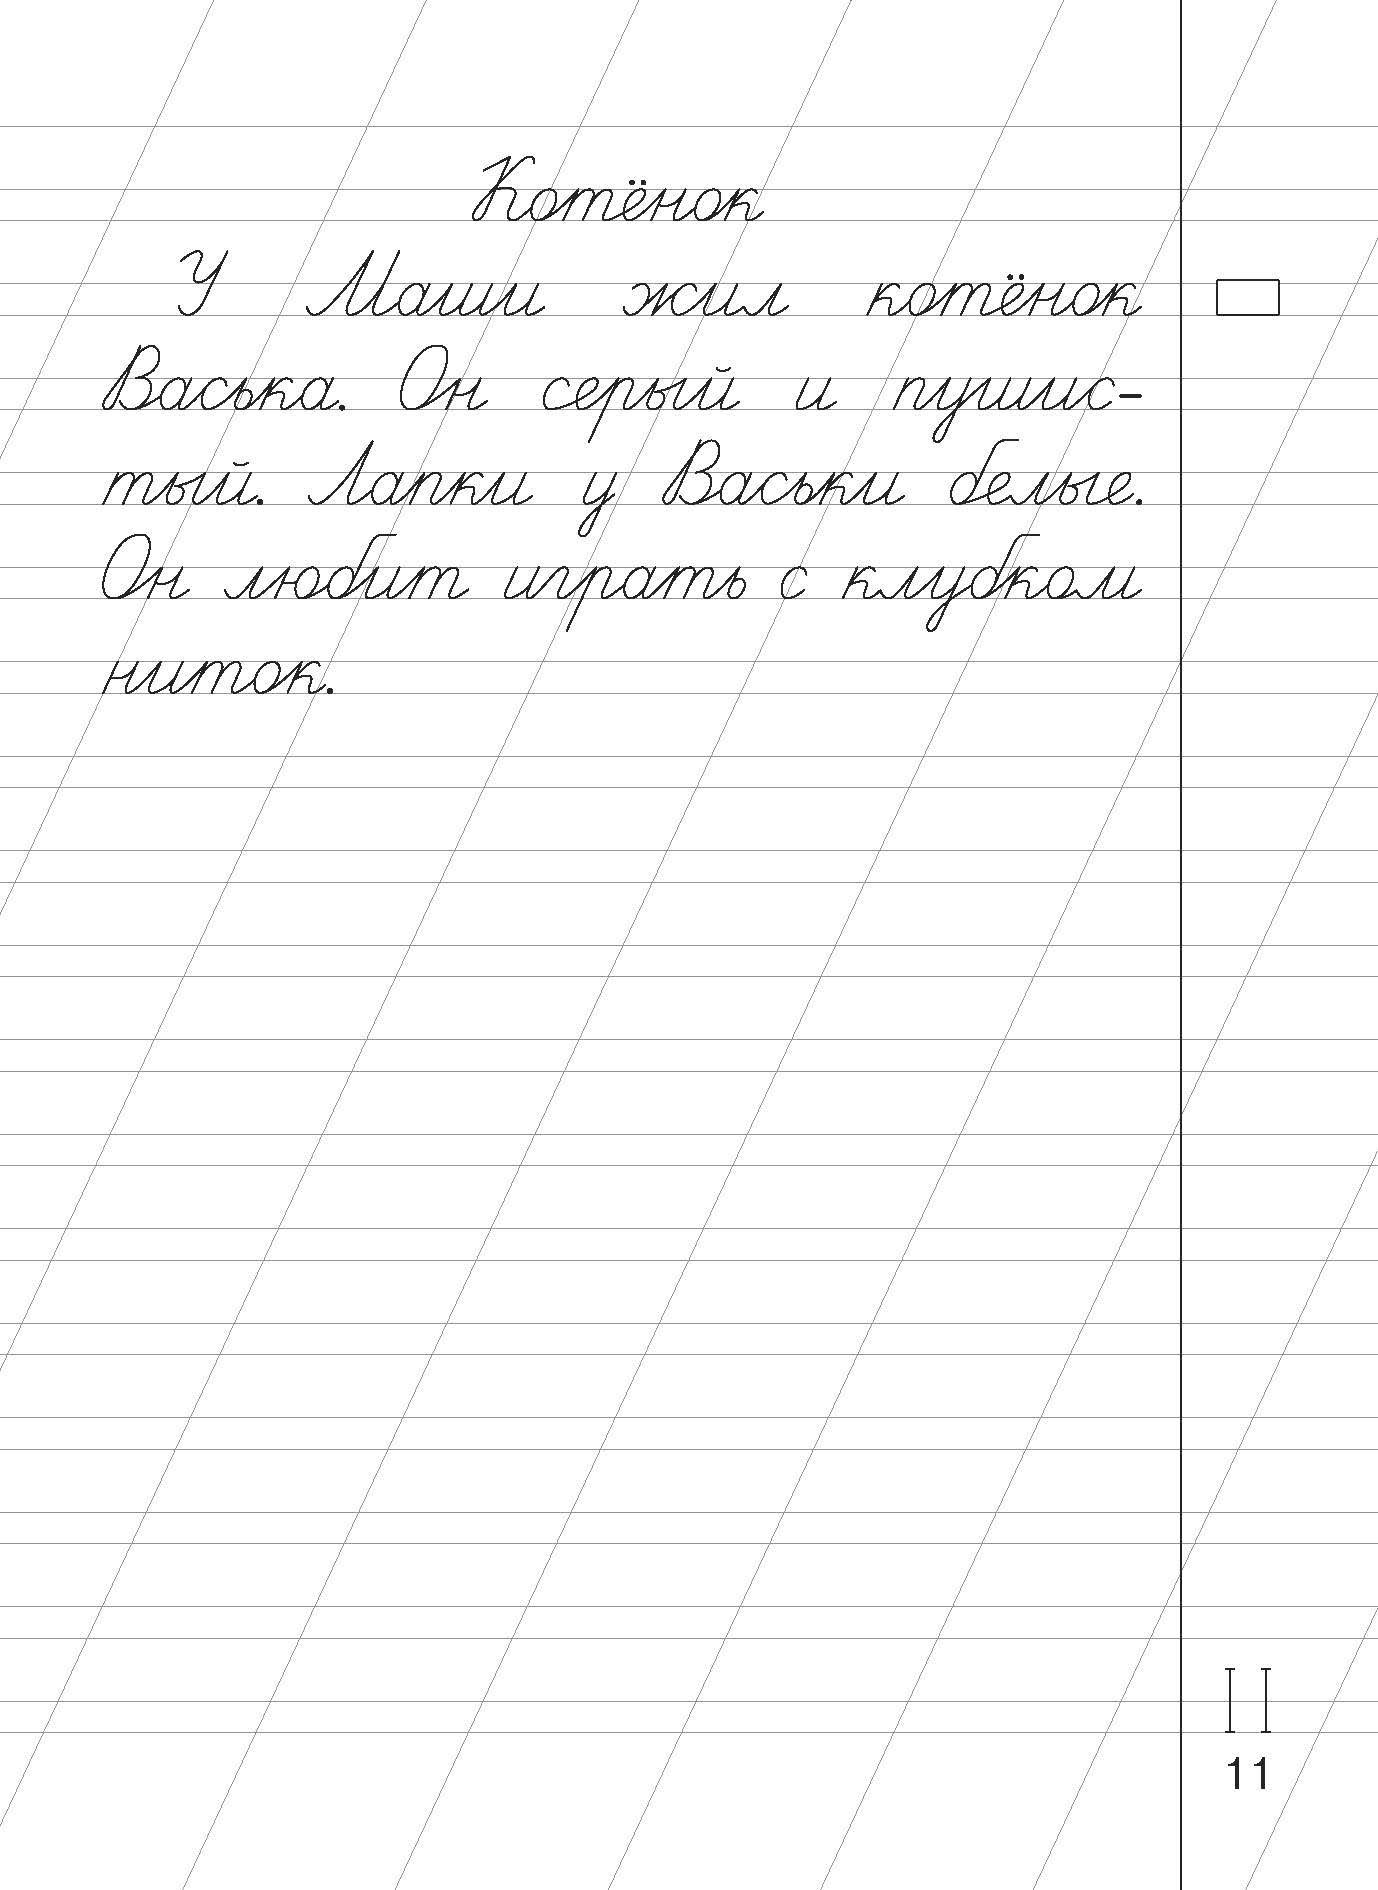 Котёнок
У Маши жил котёнок
Васька. Он серый и пушис-
тый. Лапки у Васьки белые.
Он любит играть с клубком
ниток.
11